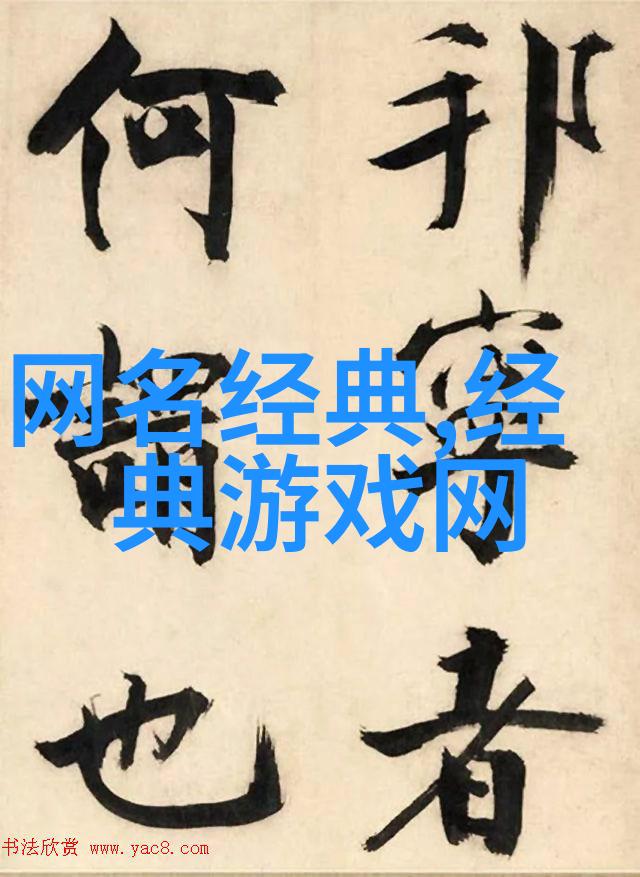 邦寧者
何謂也
网名经典,经
典游戏网
书法欣赏 www.yac8.com